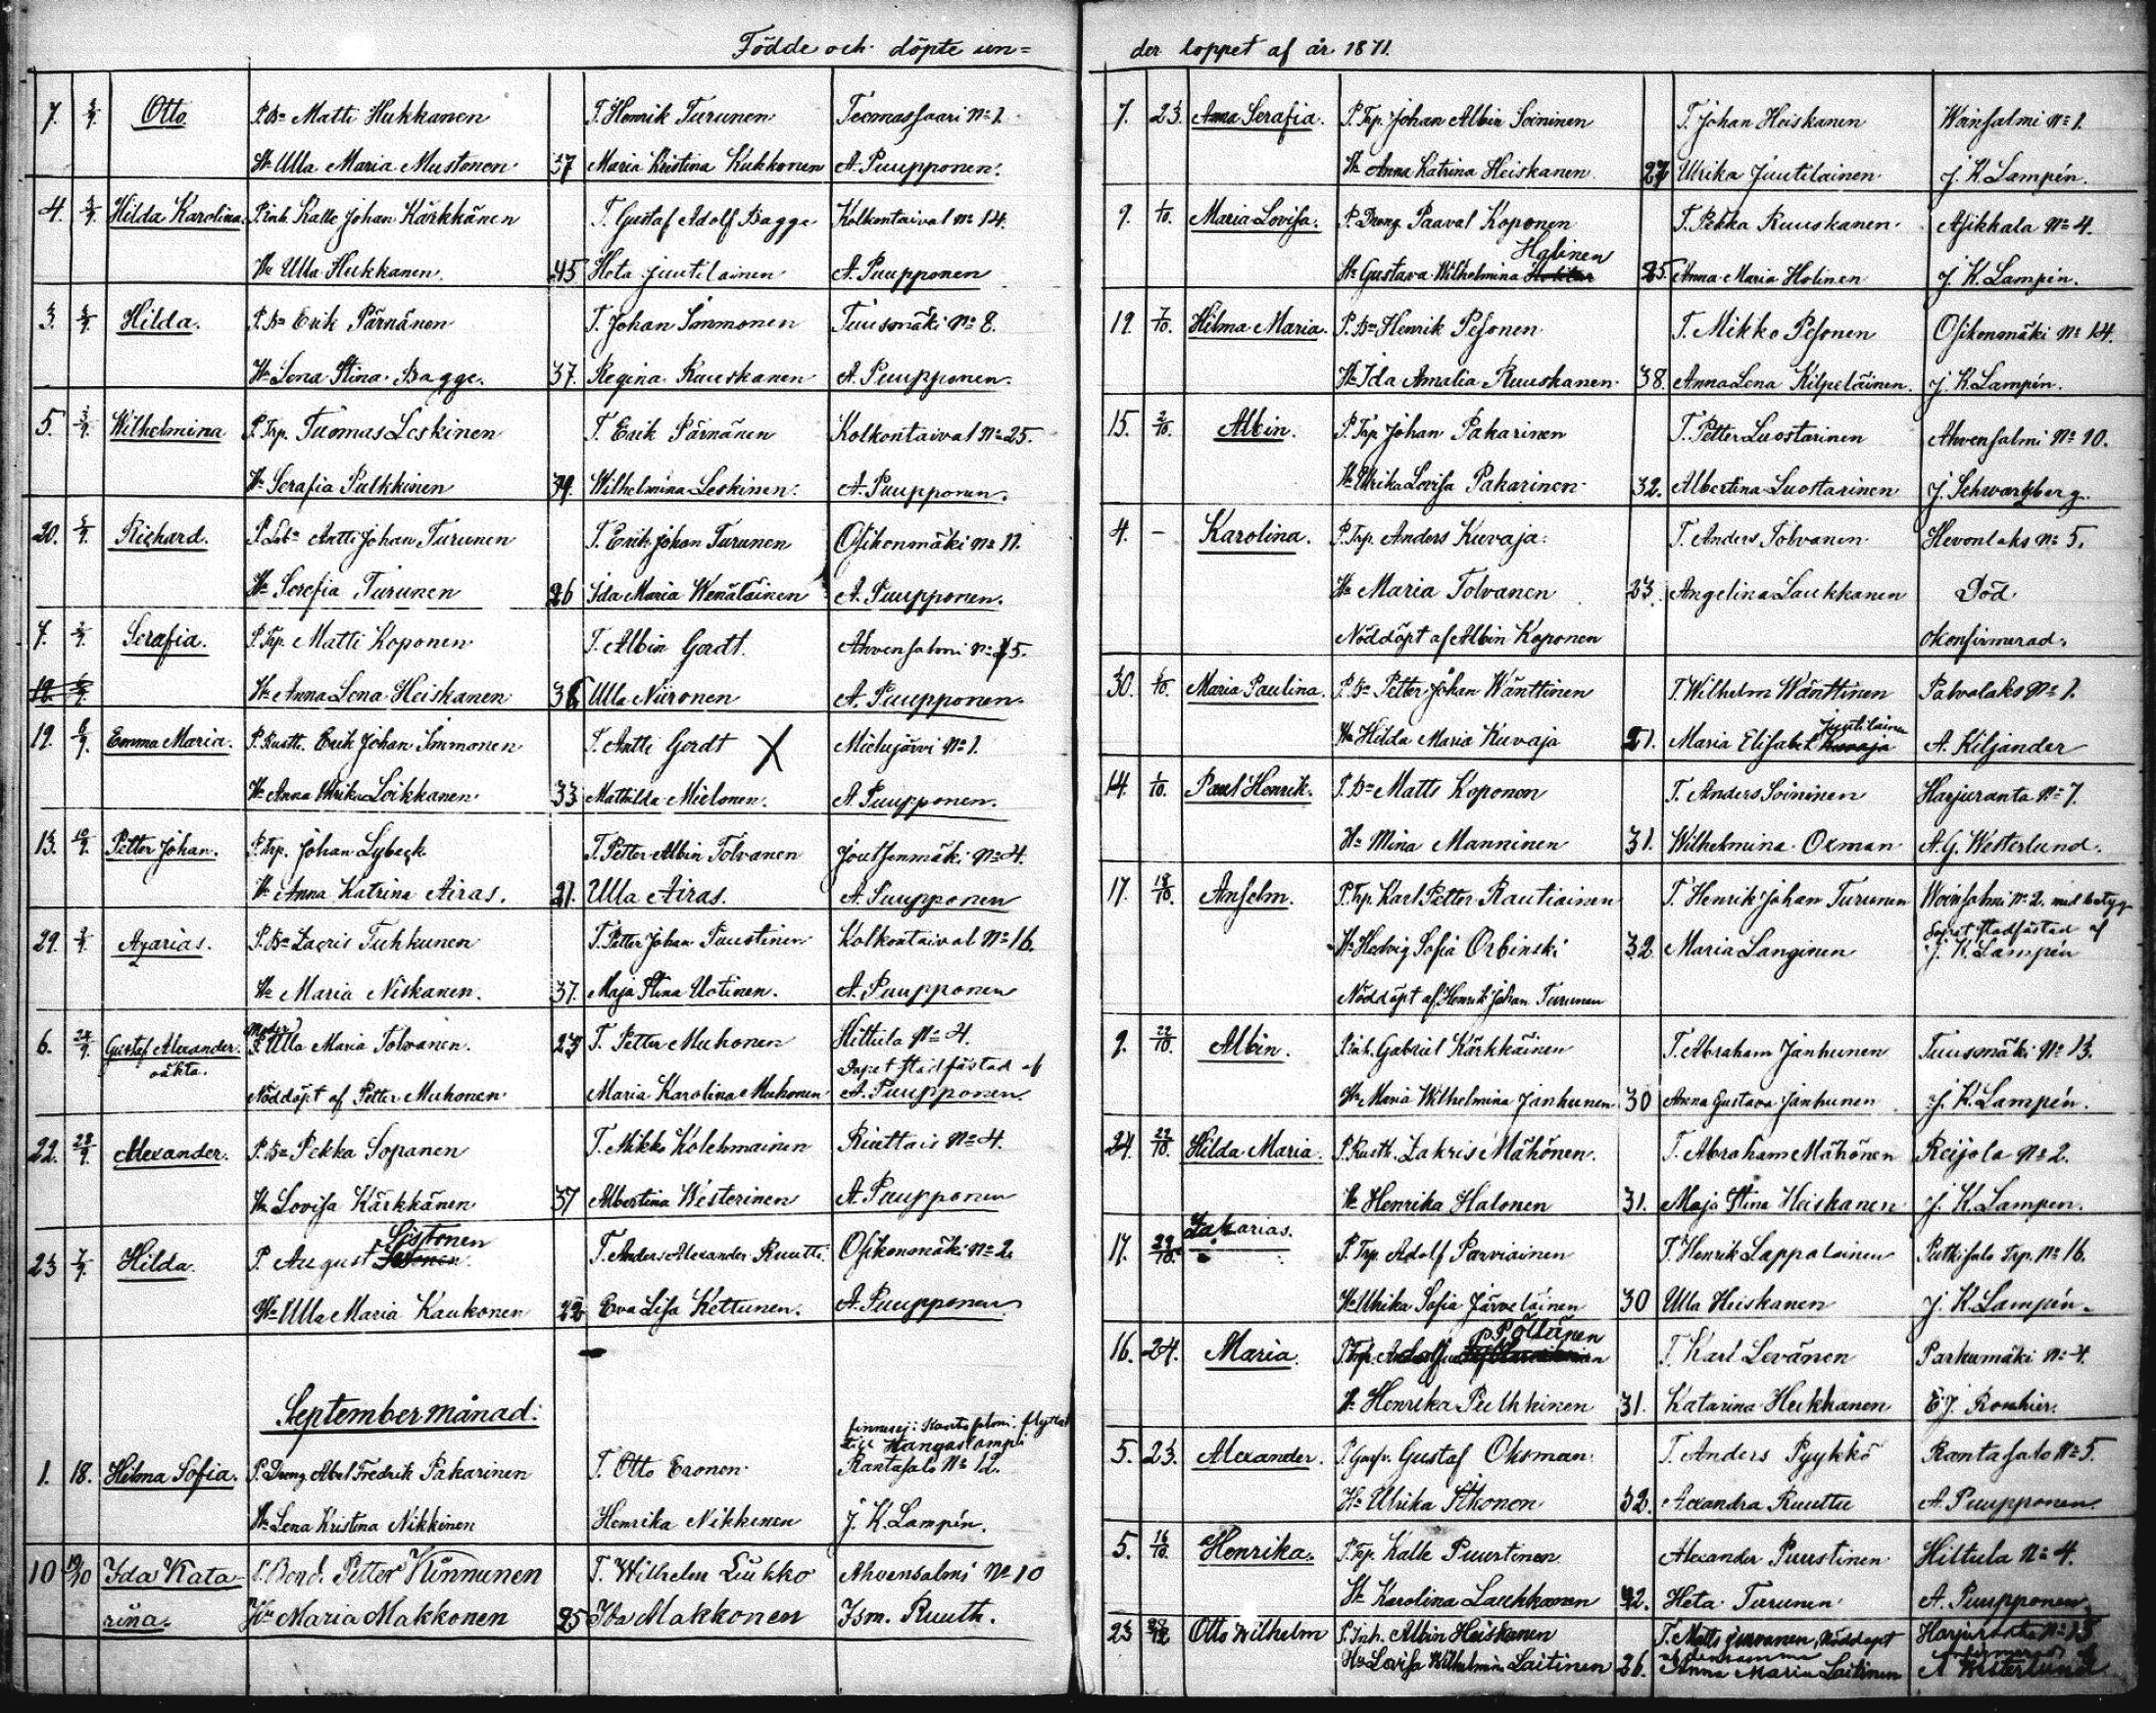 Födde och döpte un=
7. Otto P. Bn Matti Hukkanen T. Henrik Turunen Teemassaari No 1.
Hu Ulla Maria Mustonen 37 Maria Kristina Kukkonen A. Puupponen.
4. Hilda Karolina. P. inh. Kalle Johan Kärkkänen T. Gustaf Adolf Bagge Kolkontaival No 14.
Hu Ulla Hukkanen. 45 Heta Juutilainen A. Puupponen
3. Hilda. P. Bn Erik Pärnänen T. Johan Immonen Tuusmäki No 8.
Hu Lena Stina Bagge. 37. Regina Ruuskanen A. Puupponen.
5. 3/9. Wilhelmina P. Trp. Tuomas Leskinen T. Erik Pärnänen Kolkontaival No 25.
Hu Serafia Pulkkinen Wilhelmina Leskinen. A. Puupponen.
20. Richard. Antti Johan Turunen T. Erik Johan Turunen Osikonmäki No 11.
Hu Serefia Turunen 26 Ida Maria Wenäläinen A. Puupponen.
7. Serafia. P. Trp. Matti Koponen T. Albin Gerdt. Ahvensalmi No 5.
Hu Anna Lena Heiskanen 36 Ulla Niironen A. Puupponen.
19. 6/9. Emma Maria. P. Rustt. Erik Johan Immonen T. Antti Gerdt X Michijärvi No 1.
Hu Anna Ulrika Loikkanen 33 Mathilda Mielonen. A. Puupponen.
13. 10/9. Petter Johan. P. Trp. Johan Lybeck T. Petter Albin Tolvanen Joutsenmäki No 4.
Hu Anna Katrina Airas. 21. Ulla Airas. A. Puupponen
29. Azarias. P. Bn Zacris Tuhkunen T. Petter Johan Puustinen Kolkontaival No 16.
Hu Maria Niskanen. 37. Maja Stina Uotinen. A. Puupponen
6. 24/9. Gustaf Alexander. Moder P. Ulla Maria Tolvanen. 27 T. Petter Muhonen Hittula No 4.
oäkta. Dopet stadfästad af
Nöddöpt af Petter Muhonen Maria Karolina Muhonen A. Puupponen
22. 23/9. Alexander. P. Bn Pekka Sopanen T. Mikko Kolehmainen No 4.
Hu Lovisa Kärkkänen 37 Albertina Westerinen A. Puupponen
Sistonen
23 7/9. Hilda. P. August T. Anders Alexander Ruutti. Osikonmäki No 2.
Hu Ulla Maria Kaukonen 22 Eva Lisa Kettunen. A. Puupponen
September månad.
finnes ej: Kaartosalmi. flyttat
till Kangaslampi
1. 18. Hilma Sofia. P. Dreng Abel Fredrik Pakarinen T. Otto Eronen. Rantasalo No 12.
Hu Lena Kristina Nikkinen Henrika Nikkinen J. K. Lampén.
10 19/10 Ida Kata- P. Bond. Petter Kinnunen T. Wilhelm Liukko Ahvensalmi No 10
rina. Hu Maria Makkonen 25 Ida Makkonen Ism. Ruuth.
der loppet af år 1871.
7. 23. Anna Serafia. P. Trp. Johan Albin Soininen T. Johan Heiskanen Woinsalmi No 1.
Hu Anna Katrina Heiskanen. 27 Ulrika Juutilainen J. K. Lampén.
9. 1/10. Maria Lovisa. P. Dreng Paaval Koponen T. Pekka Ruuskanen. Asikkala No 4.
Halinen
Hu Gustava Wilhelmina 25. Anna Maria Holinen J. K. Lampén.
19. 7/10. Hilma Maria. P. Bn Henrik Pesonen T. Mikko Pesonen Osikonmäki No 14.
Hu Ida Amalia Ruuskanen. 38. Anna Lena Kilpeläinen. J. K. Lampén.
15. 2/10. Albin. P. Trp. Johan Pakarinen T. Petter Luostarinen Ahvensalmi No 10.
Hu Ulrika Lovisa Pakarinen 32. Albertina Luostarinen J. Schwartzberg.
4. – Karolina. P. Trp. Anders Kuvaja. T. Anders Tolvanen Hevonlaks No 5.
Hu Maria Tolvanen 23. Angelina Laukkanen Död
Nöddöpt af Albin Koponen okonfirmerad.
30. 1/10. Maria Paulina. P. Bn Petter Johan Wänttinen T. Wilhelm Wänttinen Palvalaks No 1.
Juutilainen
Hu Hilda Maria Kuvaja 21. Maria Elisabet Kuvaja A. Kiljander
14. 1/10. Paul Henrik. P. Bn Matts Koponen T. Anders Soininen Harjuranta No 7.
Hu Mina Manninen 31. Wilhelmina Oxman A. G. Westerlund.
17. 18/10. Anselm. P. Trp. Karl Petter Rautiainen T. Henrik Johan Turunen Woinsalmi No 2, med betyg
Dopet stadfästad af
Hu Hedvig Sofia Orbinski 32. Maria Langinen J. K. Lampén
Nöddöpt af Henrik Johan Turunen
9. 22/10. Albin. P. inh. Gabriel Kärkkäinen T. Abraham Janhunen Tuusmäki No 13.
Hu Maria Wilhelmina Janhunen 30 Anna Gustava Janhunen J. K. Lampén.
24. 22/10. Hilda Maria. P. Rusth. Zakris Mähönen. T. Abraham Mähönen Reijola No 2.
Hu Henrika Halonen 31. Maja Stina Heiskanen J. K. Lampen.
17. 29/10. Zakarias. P. Trp. Adolf Parviainen T. Henrik Lappalainen Putkisalo Trp. No 16.
Hu Ulrika Sofia Järveläinen 30 Ulla Heiskanen J. K. Lampén.
Pöllänen
16. 24. Maria. P. Trp. T. Karl Levänen Parkumäki No 4.
Hu Henrika Pulkkinen 31. Katarina Hukkanen E. J. Ronkier.
5. 23. Alexander. Gustaf Oksman T. Anders Pyykkö Rantasalo No 5.
Hu Ulrika Itkonen 32. Alexandra Ruuttu A. Puupponen.
5. 16/10. Henrika. P. Trp. Kalle Puustinen Alexander Puustinen Hiltula No 4.
Hu Karolina Laukkanen 32. Heta Turunen A. Puupponen
23 Otto Wilhelm P. Inh. Albin Heiskanen T. Matts nöddöpt Harjuranta No 13
af densamma
Hu Lovisa Wilhelmina Laitinen 26. Anna Maria Laitinen A Westerlund